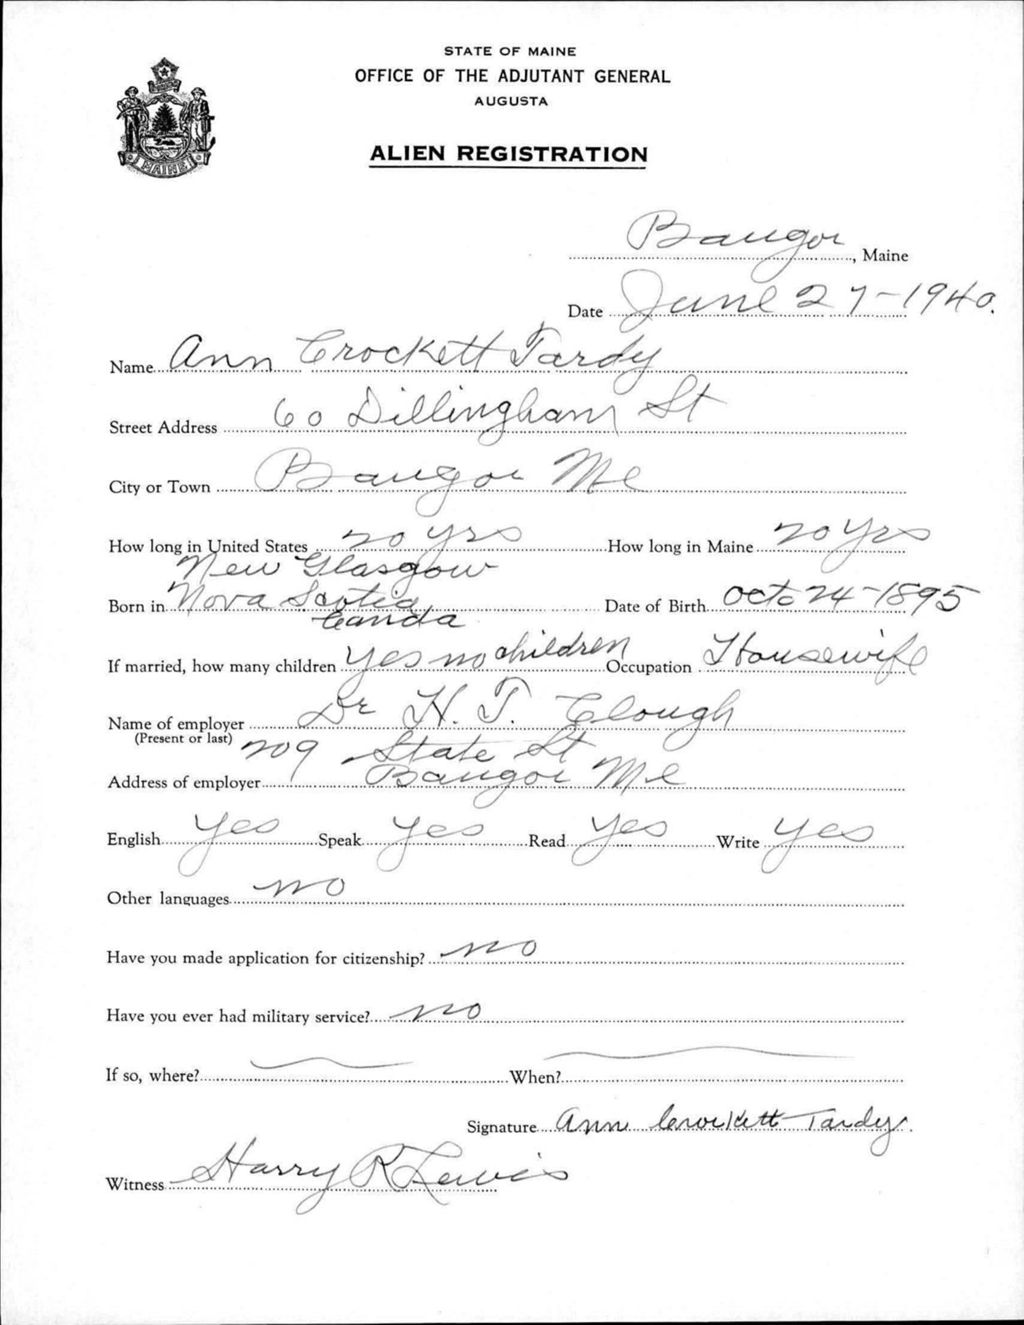 STATE OF MAINE
OFFICE OF THE ADJUTANT GENERAL
AUGUSTA
MAINE
ALIEN REGISTRATION
Bangor, Maine
Date June 27-1940.
Name Ann Crockett Tardy
Street Address 60 Dillingham St
City or Town Bangor Me
How long in United States 20 yrs How long in Maine 20 yrs
New Glasgow
Born in Nova Scotia Date of Birth Oct 24-1895
Canda
If married, how many children yes no children Occupation Housewife
Name of employer Dr H. T. Clough
(Present or last)
209 State St
Address of employer Bangor Me
English Yes Speak Yes Read Yes Write Yes
Other languages no
Have you made application for citizenship? no
Have you ever had military service? no
If so, where? When?
Signature Ann Crockett Tardy.
Witness Harry R Lewis